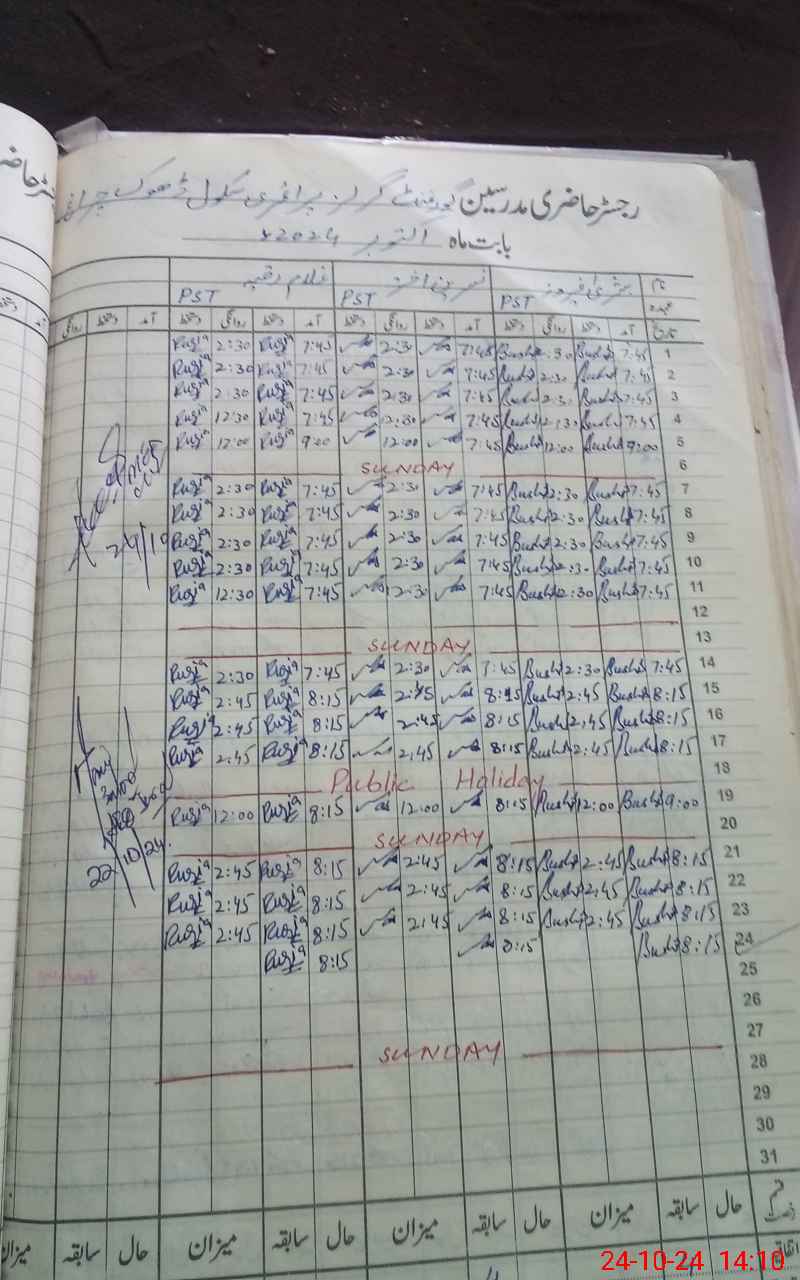 رجسٹر حاضری مدرسین گورنمنٹ گرلز پرائمری سکول ڈھوک چراغ
بابت ماہ اکتوبر 2024ء
نام بشریٰ فیروز نسرین اختر غلام رقیہ
عہدہ PST PST PST
تاریخ آمد دستخط روانگی دستخط آمد دستخط روانگی دستخط آمد دستخط روانگی دستخط آمد دستخط روانگی
1 7:45 Bushra 2:30 Bushra 7:45 2:30 7:45 Ruqia 2:30 Ruqia
2 7:45 Bushra 2:30 Bushra 7:45 2:30 7:45 Ruqia 2:30 Ruqia
3 7:45 Bushra 2:30 Bushra 7:45 2:30 7:45 Ruqia 2:30 Ruqia
4 7:45 Bushra 12:30 Bushra 7:45 12:30 7:45 Ruqia 12:30 Ruqia
5 9:00 Bushra 12:00 Bushra 7:45 12:00 9:00 Ruqia 12:00 Ruqia
6 SUNDAY
7 7:45 Bushra 2:30 Bushra 7:45 2:30 7:45 Ruqia 2:30 Ruqia
8 7:45 Bushra 2:30 Bushra 7:45 2:30 7:45 Ruqia 2:30 Ruqia
9 7:45 Bushra 2:30 Bushra 7:45 2:30 7:45 Ruqia 2:30 Ruqia
10 7:45 Bushra 2:30 Bushra 7:45 2:30 7:45 Ruqia 2:30 Ruqia
11 7:45 Bushra 12:30 Bushra 7:45 12:30 7:45 Ruqia 12:30 Ruqia
12
13 SUNDAY
14 7:45 Bushra 2:30 Bushra 7:45 2:30 7:45 Ruqia 2:30 Ruqia
15 8:15 Bushra 2:45 Bushra 8:15 2:45 8:15 Ruqia 2:45 Ruqia
16 8:15 Bushra 2:45 Bushra 8:15 2:45 8:15 Ruqia 2:45 Ruqia
17 8:15 Bushra 2:45 Bushra 8:15 2:45 8:15 Ruqia 2:45 Ruqia
18 Public Holiday
19 9:00 Bushra 12:00 Bushra 8:15 12:00 8:15 Ruqia 12:00 Ruqia
20 SUNDAY
21 8:15 Bushra 2:45 Bushra 8:15 2:45 8:15 Ruqia 2:45 Ruqia
22 8:15 Bushra 2:45 Bushra 8:15 2:45 8:15 Ruqia 2:45 Ruqia
23 8:15 Bushra 2:45 Bushra 8:15 2:45 8:15 Ruqia 2:45 Ruqia
24 8:15 Bushra 8:15 8:15 Ruqia
25
26
27 SUNDAY
28
29
30
31
22/10/24
حال سابقہ میزان حال سابقہ میزان حال سابقہ میزان حال سابقہ میزان
24-10-24 14:10